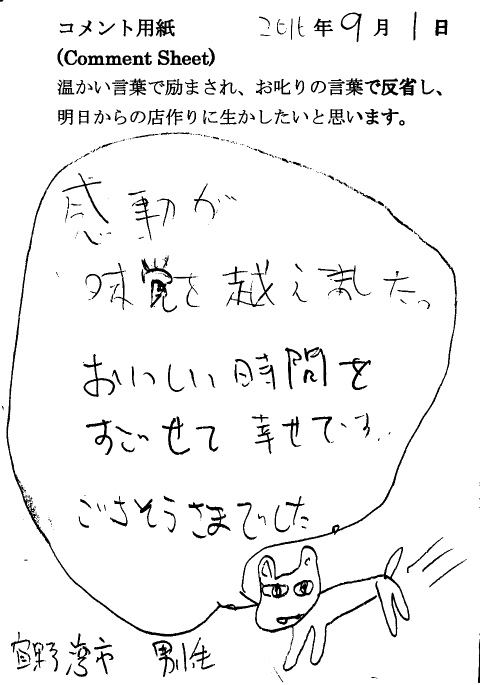 コメント用紙 2016年9月1日
(Comment Sheet)
温かい言葉で励まされ、お叱りの言葉で反省し、
明日からの店作りに生かしたいと思います。
感動が
味覚を越えました。
おいしい時間を
すごせて幸せです。
ごちそうさまでした
宜野湾市 男性